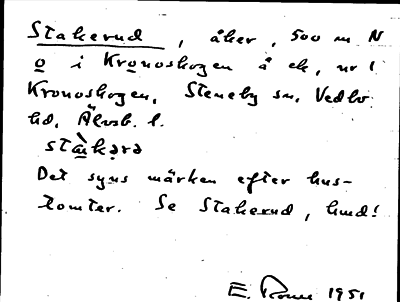 Stakerud, åker, 500 m N
o i Kronoskogen å ek, nr 1
Kronoskogen, Steneby sn, Vedbo
hd, Älvsb. l.
Det syns märken efter hus-
tomter. Se Stakerud, hmd!
E. 1951